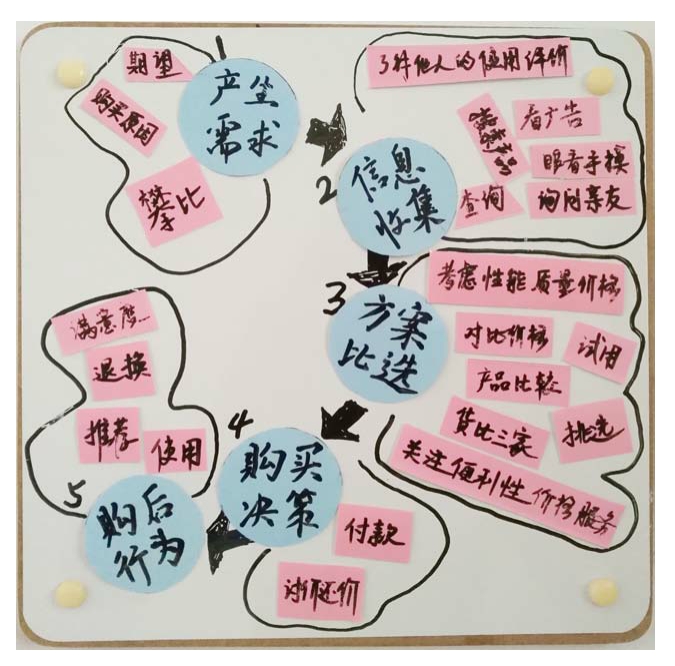 期望
购买原因
攀比
产生
需求
了解他人的使用评价
搜索产品
看广告
眼看手摸
查询
询问亲友
2
信息
收集
3
方案
比选
考虑性能质量价格
对比价格
试用
产品比较
货比三家
挑选
关注便利性价格服务
4
购买
决策
付款
讨价还价
5
购后
行为
满意度
退换
推荐
使用